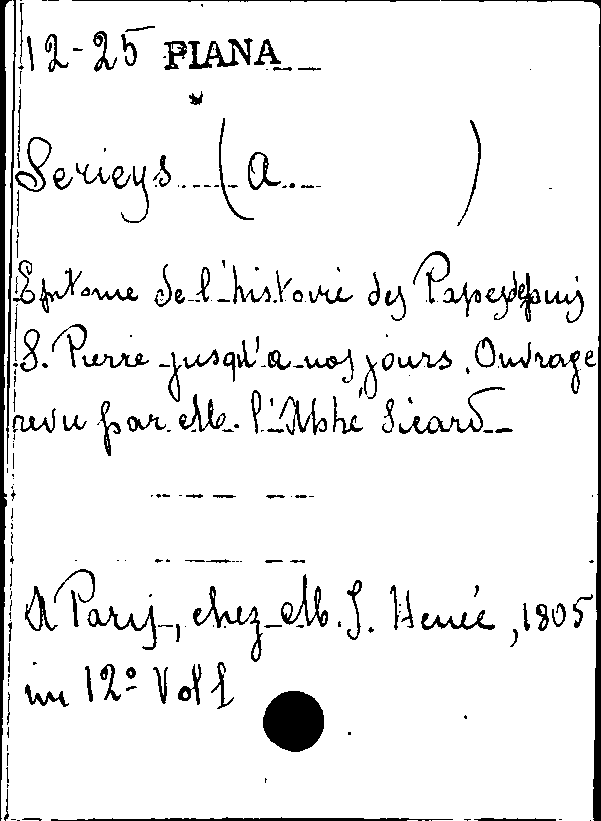 12-25 PIANA
Serieys (A. )
Epitome de l'histoire des Papes depuis
S. Pierre jusqu'a nos jours. Ouvrage
revu par M. l'Abbé Sicard
A Paris, chez M. J. Henée, 1805
in 12º Vol 1